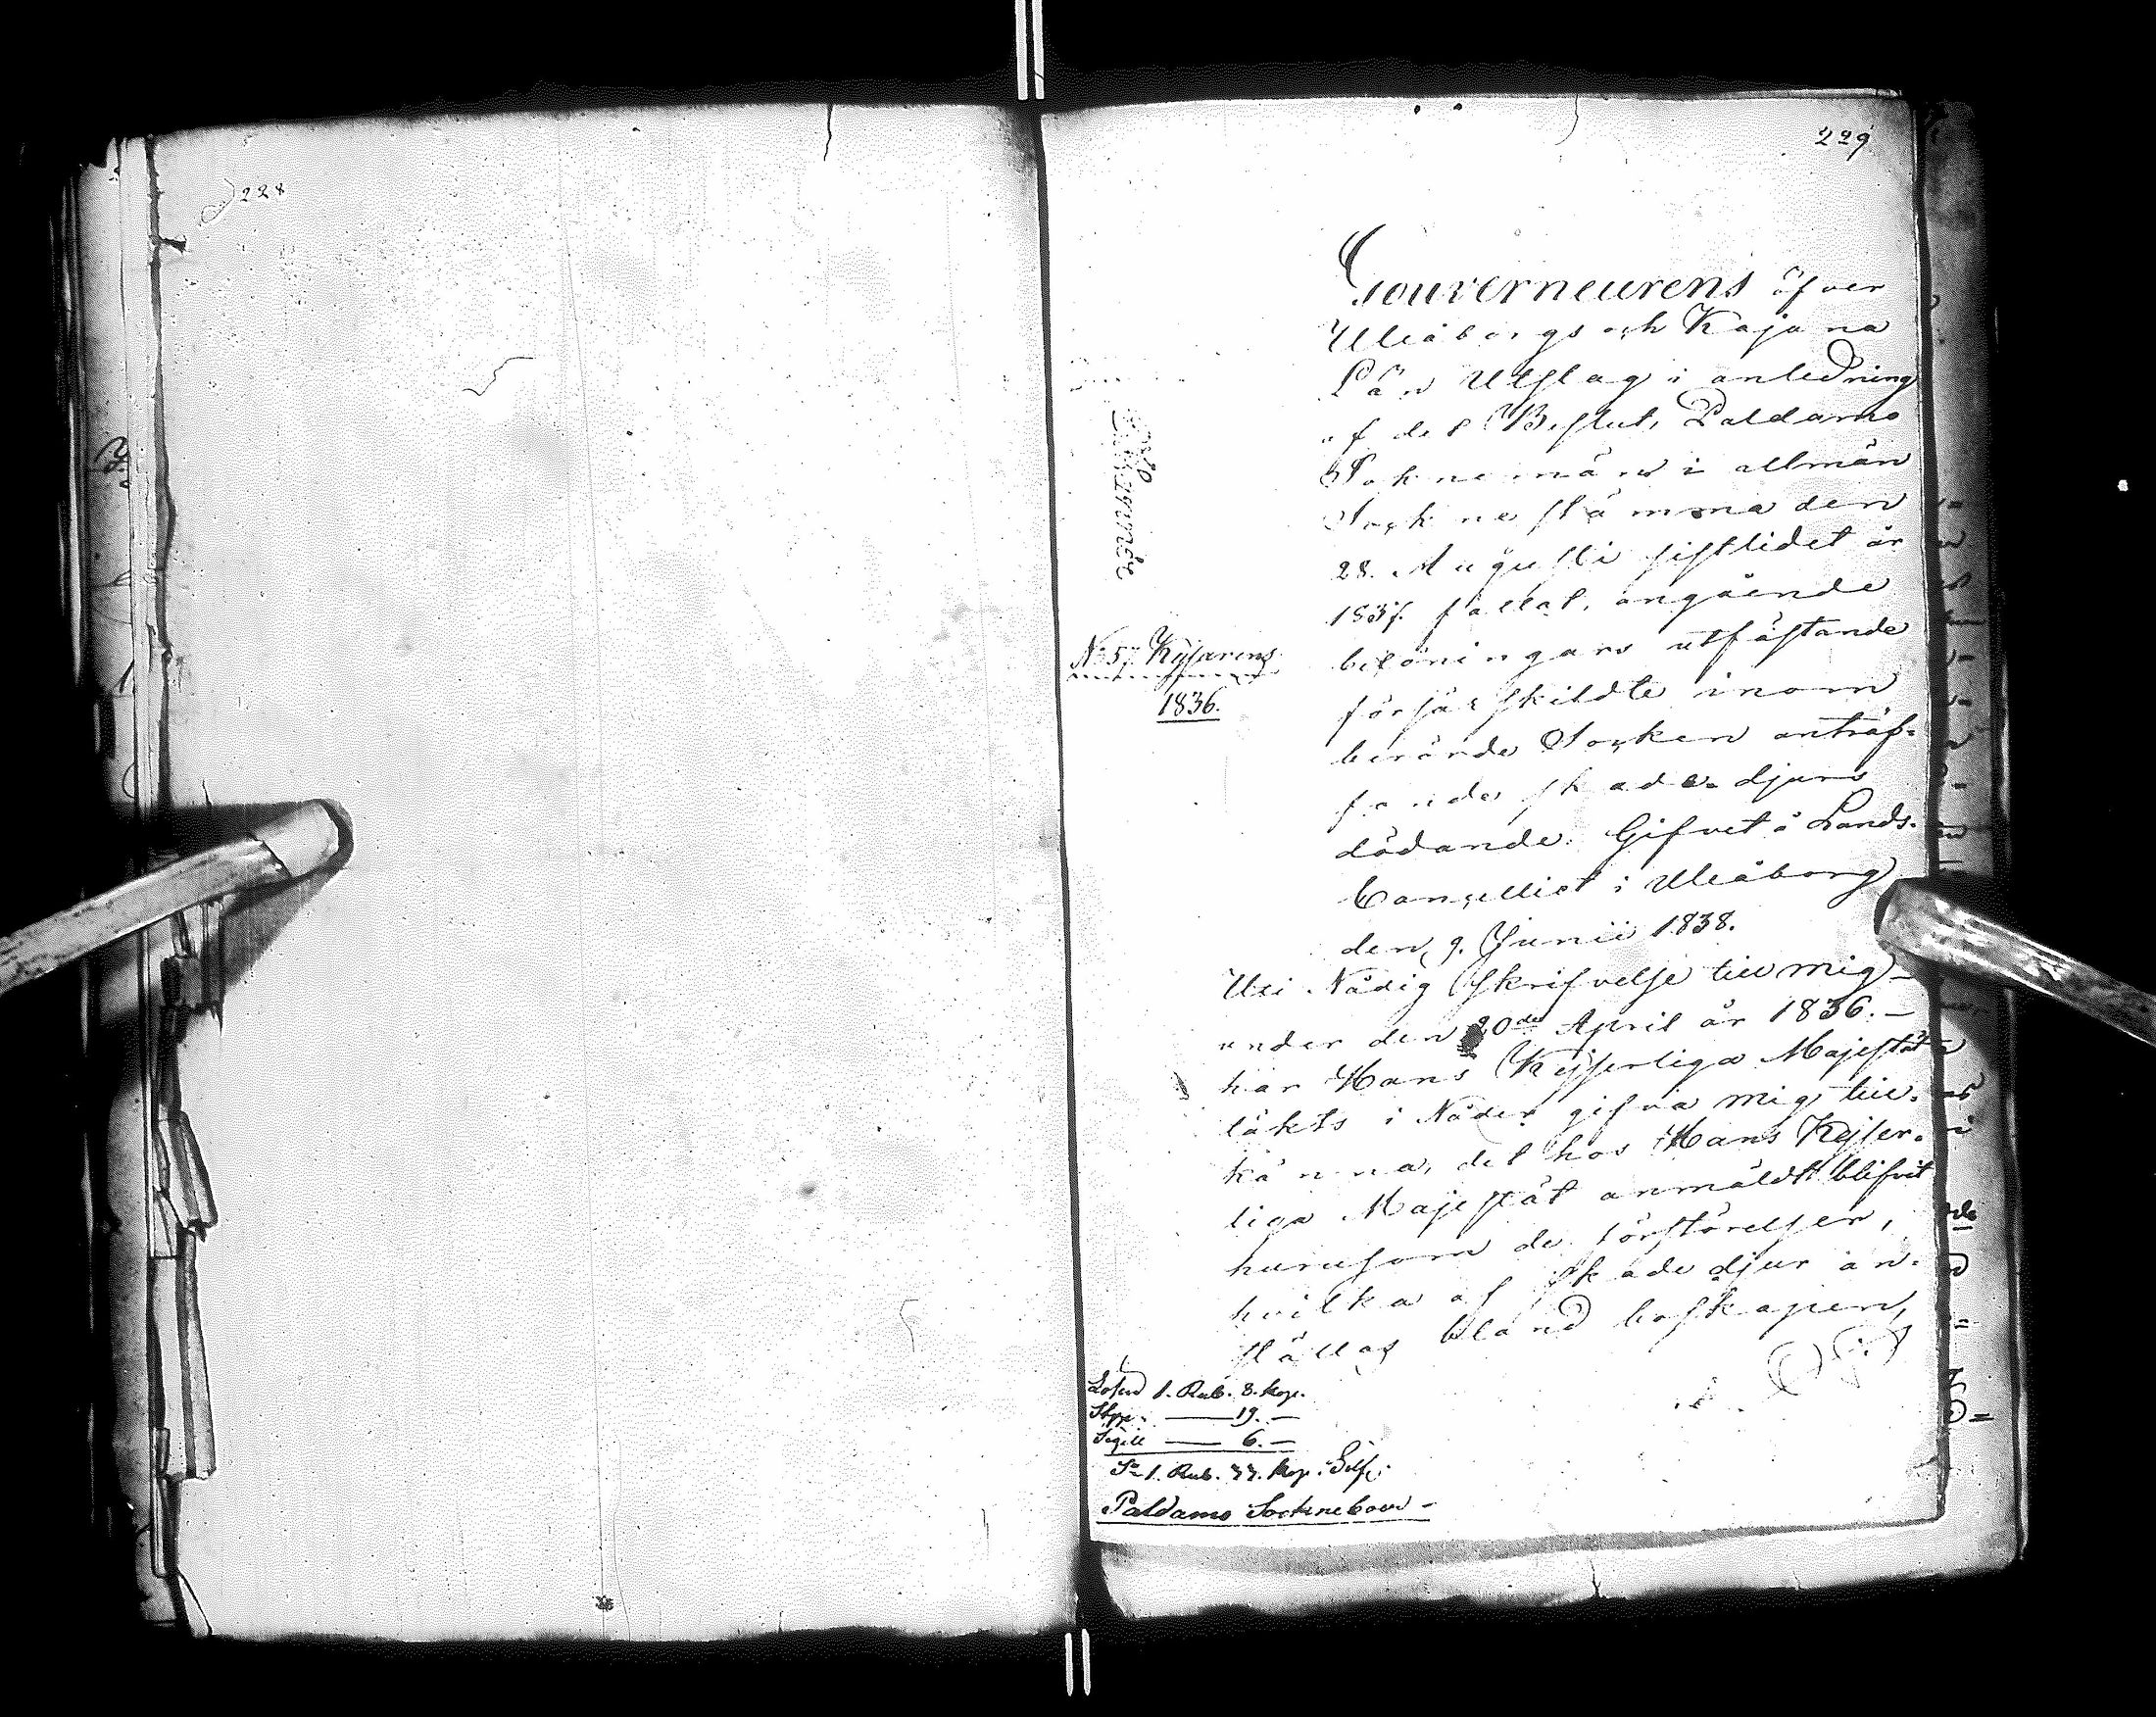 228
229
Gouverneurens öfver
Uleåborgs och Kajana
Län Utslag i anledning
af det Beslut, Paldamo
Soknemän i allmän
Sockne stämma den
28. Augusti sistlidet år
1837. fattat, angående
belöningars utfästande
för särskildte inom
berörde Socken anträf-
fande skade-djurs
dödande. Gifvet å Lands-
Cancelliet i Uleåborg
den 9. Junii 1838.
No 57 Kejsarens
1836.
Uti Nådig skrifvelse till mig
under den 20de April år 1836. –
har Hans Kejserliga Majestät
täkts i Nåder gifva mig till-
känna, det hos Hans Kejser-
liga Majestät anmäldt blifvit
hurusom de förstörelser,
hvilka af skade djur an-
ställas bland boskapen,
Lösen 1. Rub. 8. kop.
Stpp. — 19. —
Sigill — 6. —
Sa 1. Rub. 33. kop. Silf.
Paldamo Sockneboer –